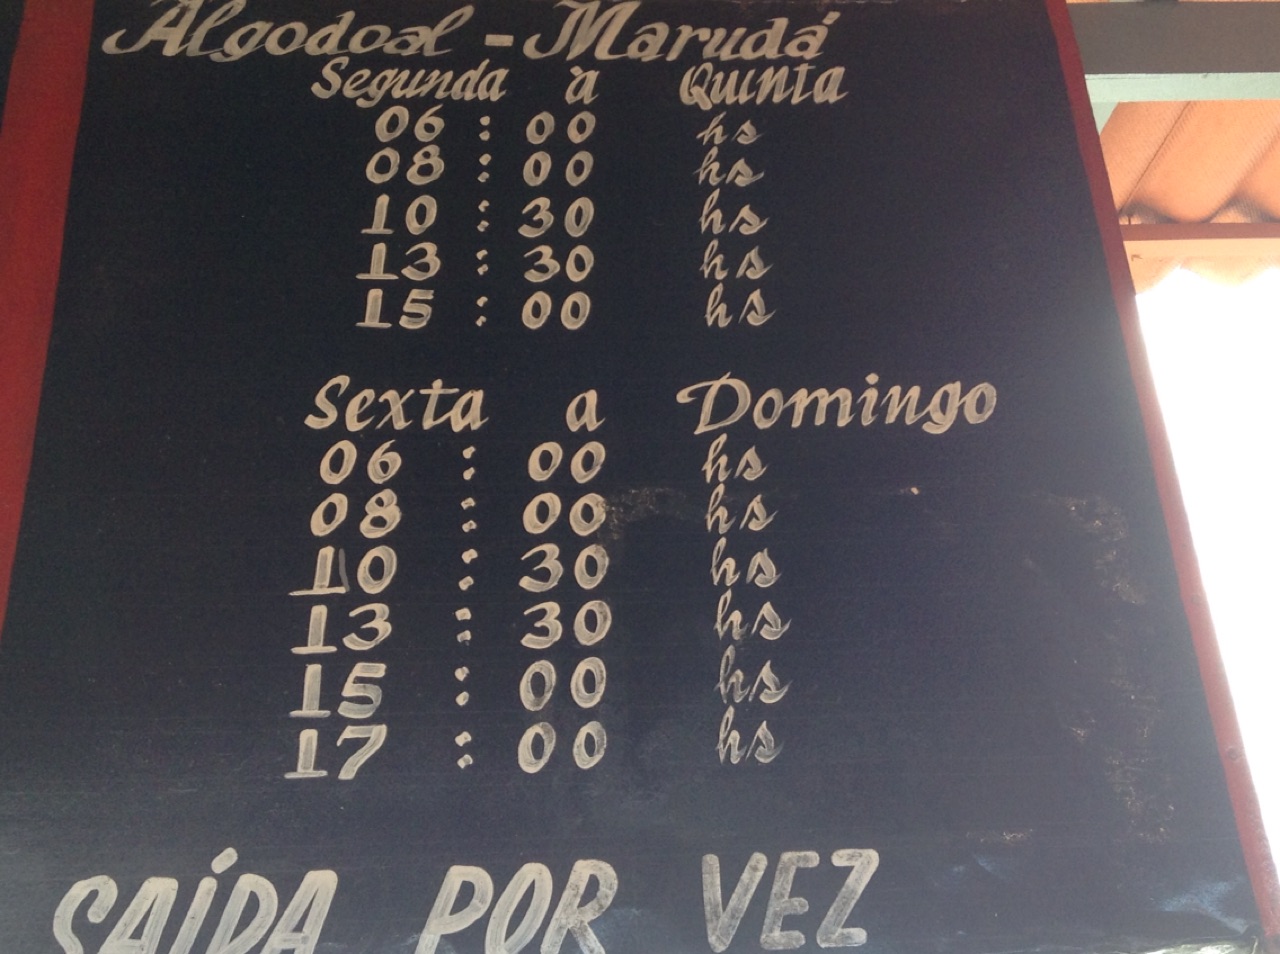 Algodoal - Marudá
Segunda à Quinta
06 : 00 hs
08 : 00 hs
10 : 30 hs
13 : 30 hs
15 : 00 hs
Sexta a Domingo
06 : 00 hs
08 : 00 hs
10 : 30 hs
13 : 30 hs
15 : 00 hs
17 : 00 hs
SAÍDA POR VEZ